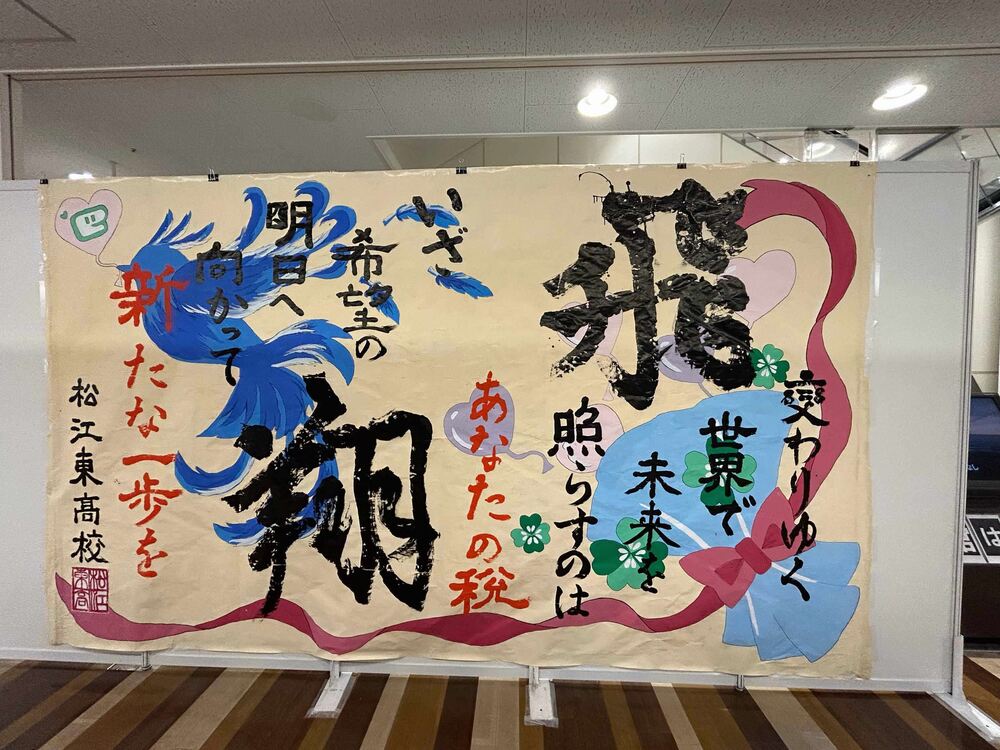 飛翔
変わりゆく
世界で
未来を
照らすのは
あなたの税
いざ
希望の
明日へ
向かって
新たな一歩を
松江東高校